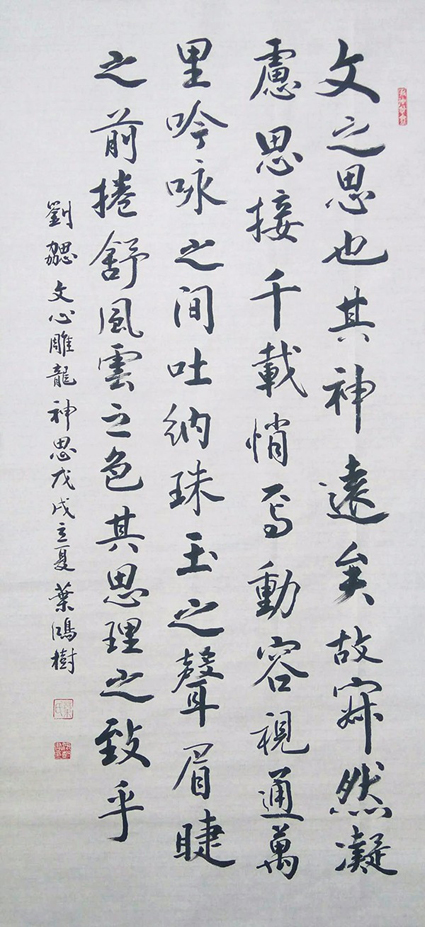 文之思也其神遠矣故寂然凝
慮思接千載悄焉動容視通萬
里吟咏之間吐納珠玉之聲眉睫
之前捲舒風雲之色其思理之致乎
劉勰文心雕龍神思戊戌立夏葉鴻樹